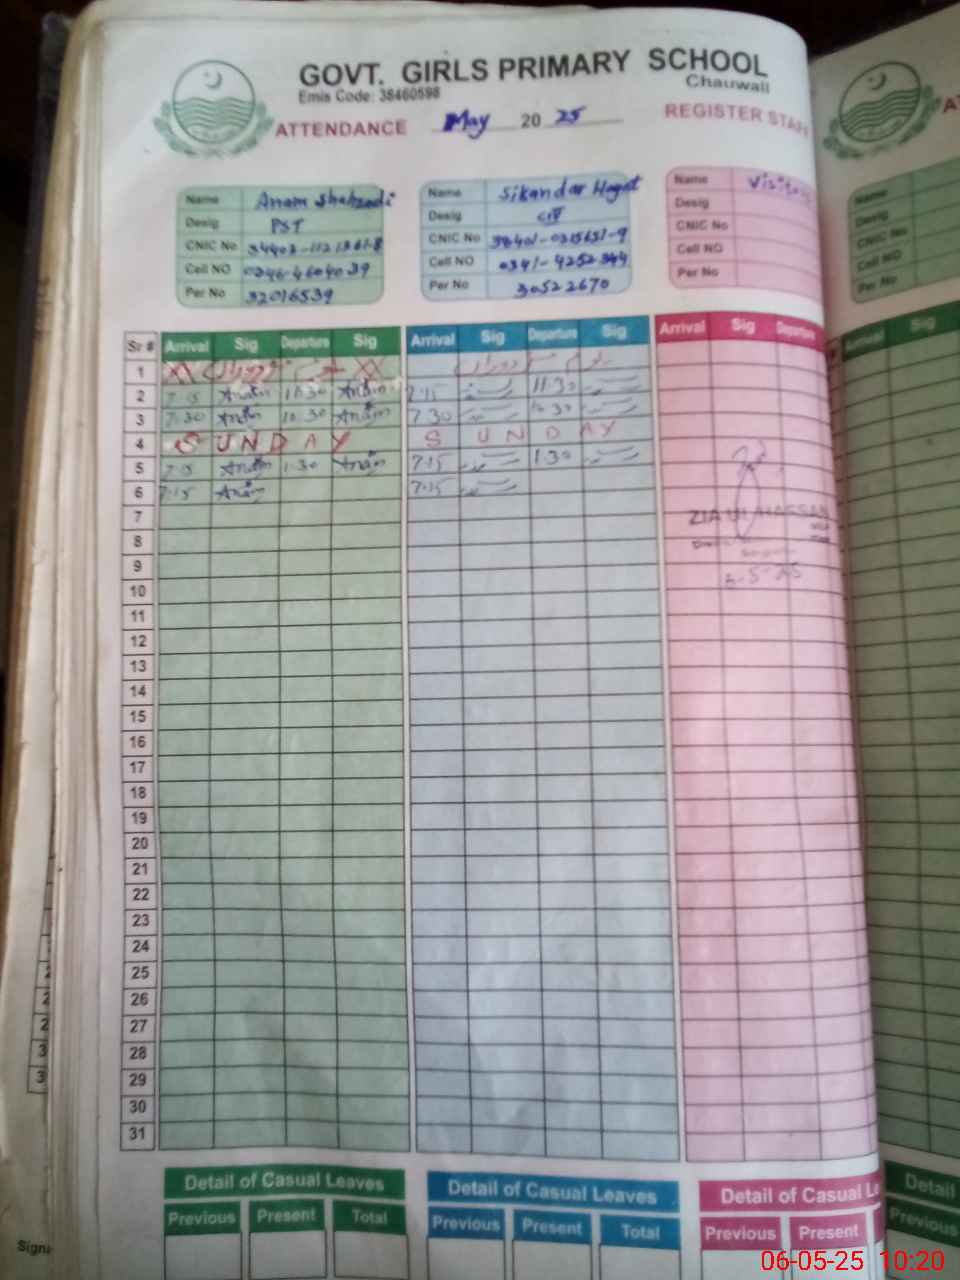 GOVT. GIRLS PRIMARY SCHOOL
Chauwali
Emis Code: 38460598
ATTENDANCE May 20 25 REGISTER STAFF
Name Anam Shahzadi
Desig PST
CNIC No
Cell NO
Per No 32016539
Name Sikandar Hayat
Desig CIV
CNIC No
Cell NO 0341-4252344
Per No 30522670
Name Visitors
Desig
CNIC No
Cell NO
Per No
Name
Desig
CNIC No
Cell NO
Per No
Sr # Arrival Sig Departure Sig Arrival Sig Departure Sig Arrival Sig Departure Arrival Sig
1
2 7:15 Anam 11:30 Anam 7:15 11:30
3 7:30 Anam 10:30 Anam 7:30 10:30
4 SUNDAY SUNDAY
5 7:15 Anam 1:30 Anam 7:15 1:30
6 7:15 Anam 7:15
7 ZIA UL HASSAN
8
9
10
11
12
13
14
15
16
17
18
19
20
21
22
23
24
25
26
27
28
29
30
31
Detail of Casual Leaves Detail of Casual Leaves Detail of Casual Le Detail
Previous Present Total Previous Present Total Previous Present Previous
06-05-25 10:20